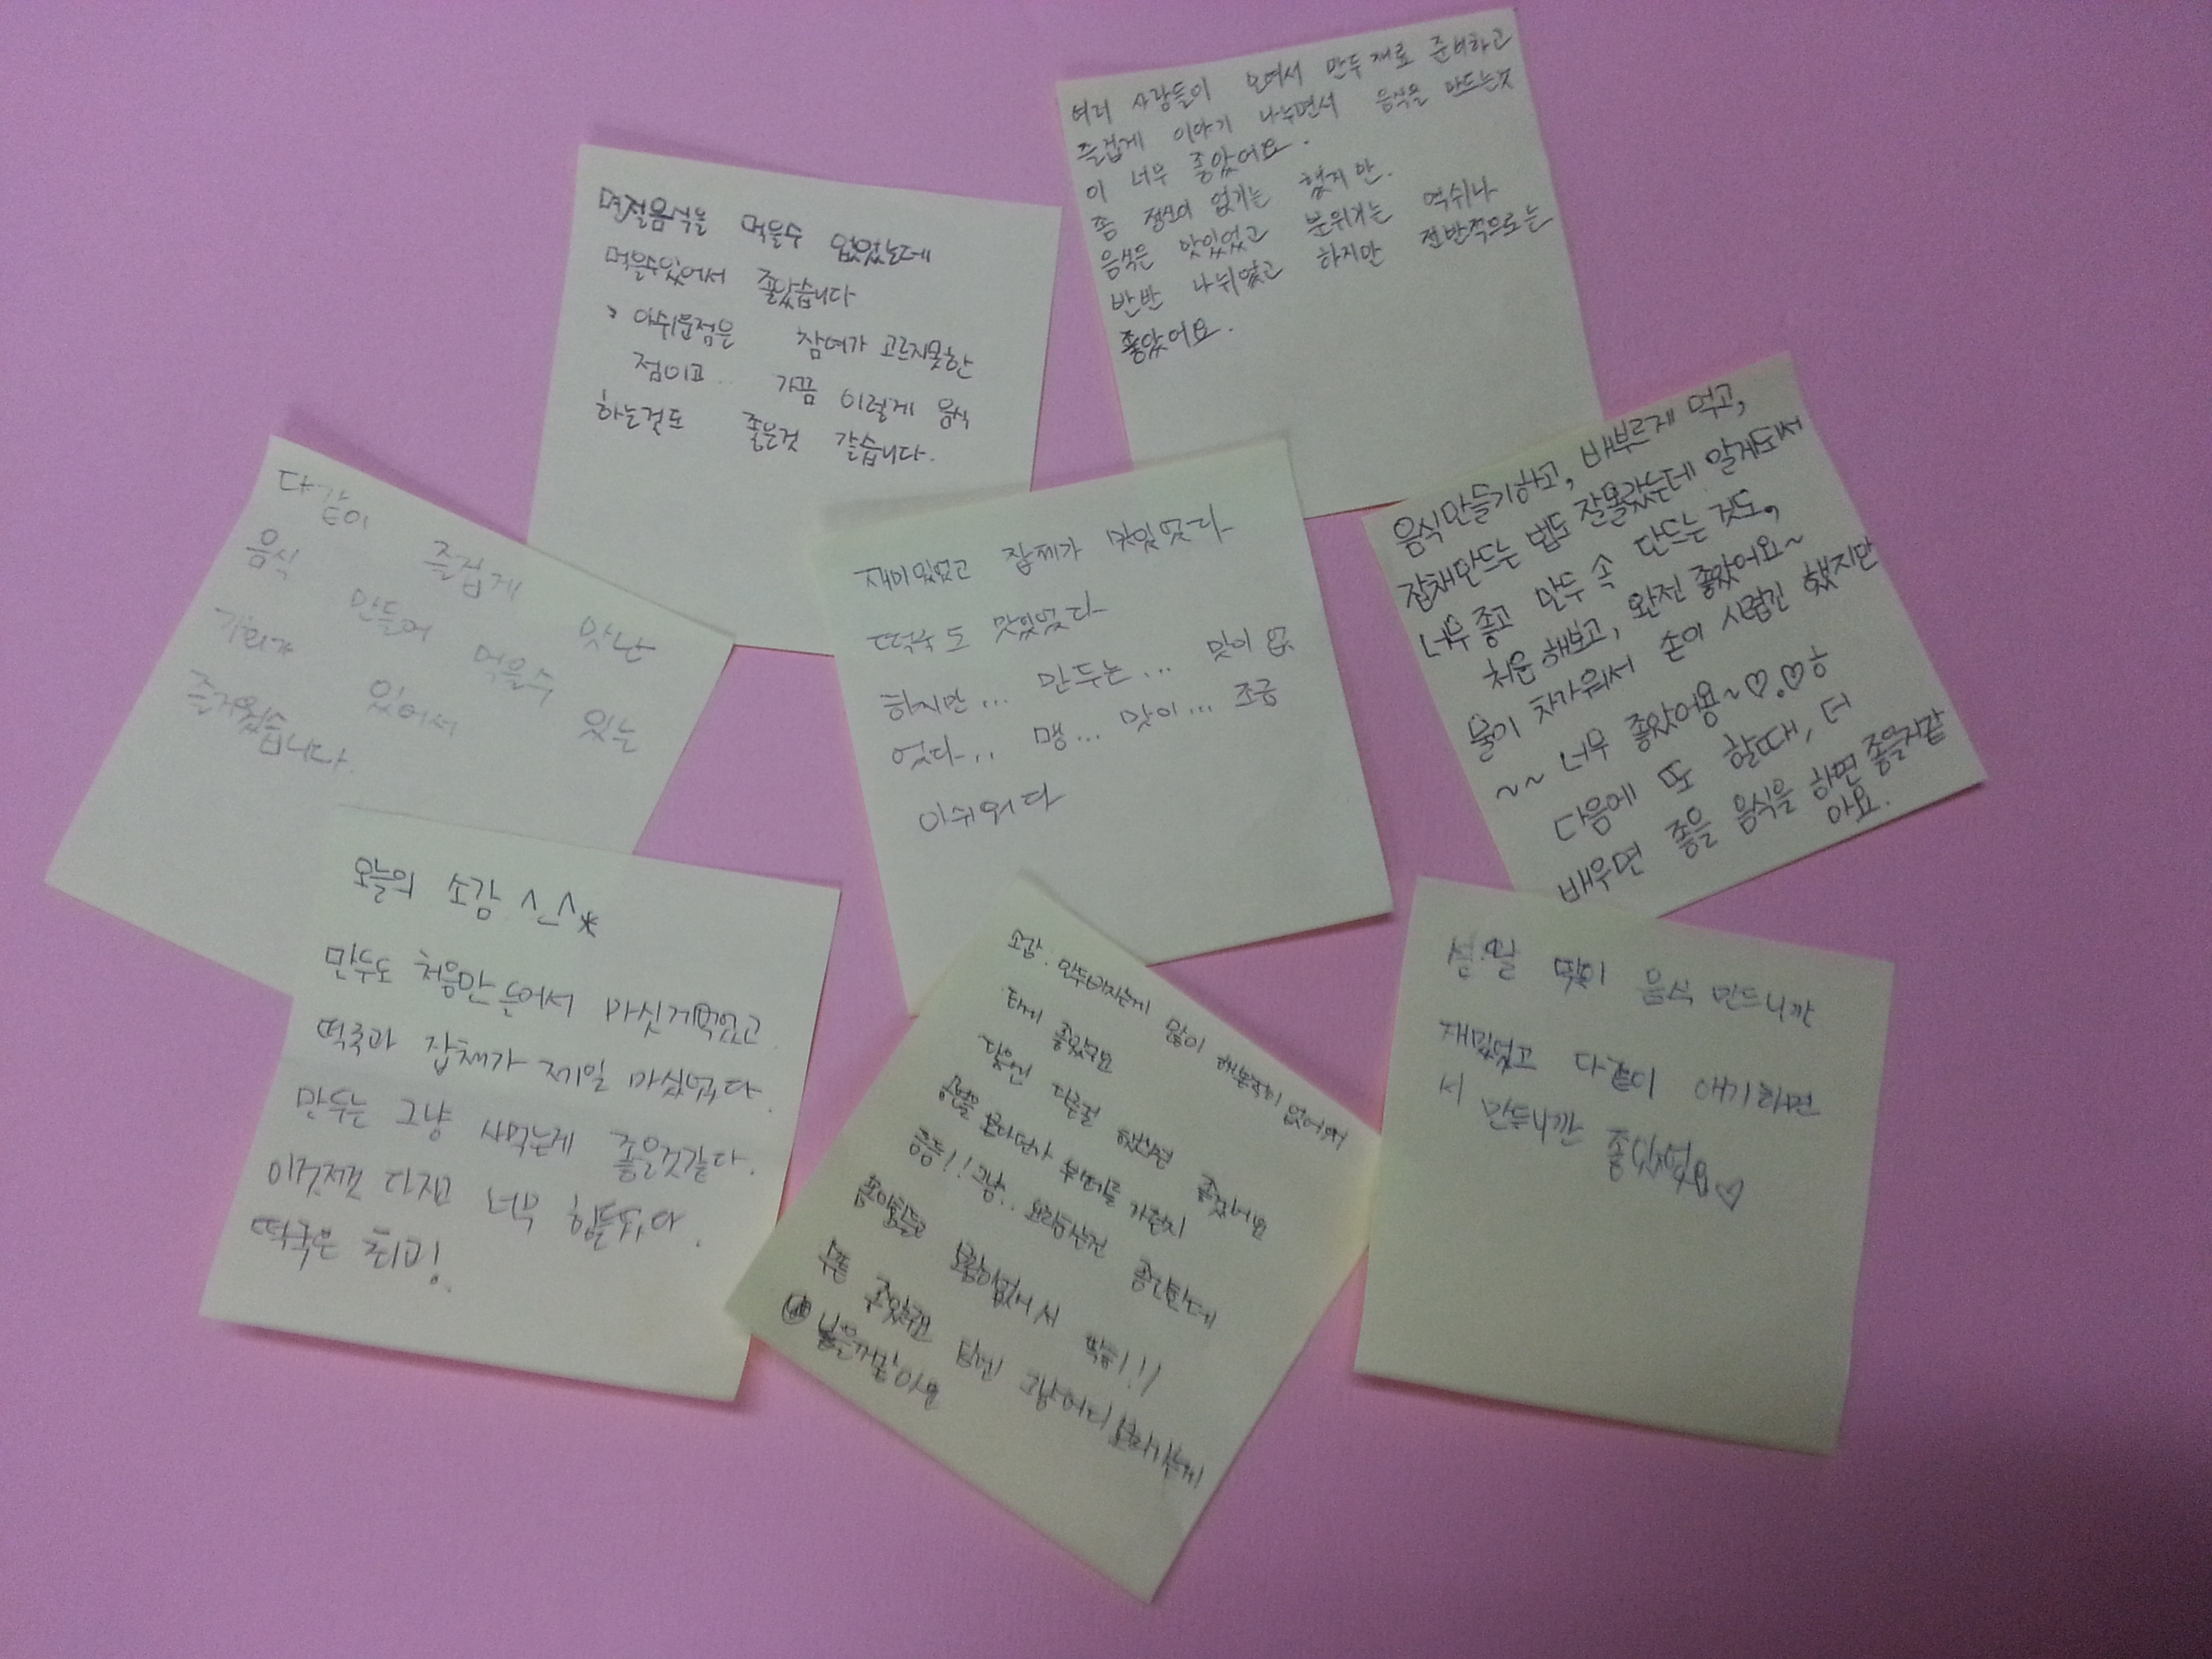 여러 사람들이 모여서 만두재료 준비하고
즐겁게 이야기 나누면서 음식을 만드는것
이 너무 좋았어요.
좀 정신이 없기는 했지만.
음식은 맛있었고 분위기는 역쉬나
반반 나뉘었고 하지만 전반적으로는
좋았어요.
명절음식을 먹을수 없었는데
먹을수있어서 좋았습니다
아쉬운점은 참여가 고르지못한
점이고.. 가끔 이렇게 음식
하는것도 좋은것 같습니다.
다같이 즐겁게 맛난
음식 만들어 먹을수 있는
기회가 있어서
즐거웠습니다.
재미있었고 잡체가 맛있었다
떡국도 맛있었다
하지만... 만두는... 맛이 없
었다... 맹... 맛이... 조금
아쉬워다
음식만들기하고, 배부르게 먹고,
잡채만드는 법도 잘몰랐는데 알게되서
너무 좋고 만두 속 만드는 것도,
처음 해보고, 완전 좋았어요~
물이 차가워서 손이 시렵긴 했지만
~~ 너무 좋았어용~♡.♡ㅎ
다음에 또 할때, 더
배우면 좋을 음식을 하면 좋을거같
아요.
오늘의 소감 ^_^*
만두도 처음만들어서 마싯게먹었고
떡국과 잡채가 제일 마싰었다.
만두는 그냥 사먹는게 좋을것같다.
이것저것 다지고 너무 힘들다.
떡국은 최고!
소감. 만두비지는게 많이 해본적이 없어서
되게 좋았구요
담엔 다른걸 했으면 좋겠어요
방법을 한다던가 부페를 가던지
등등!! 그냥.. 요리하는건 좋긴한데
보람이없어서 딱히!!!
쭈욱 그냥어디
같이 음식 만드니까
재밌었고 다같이 얘기하면
서 만드니깐 좋았어요♡